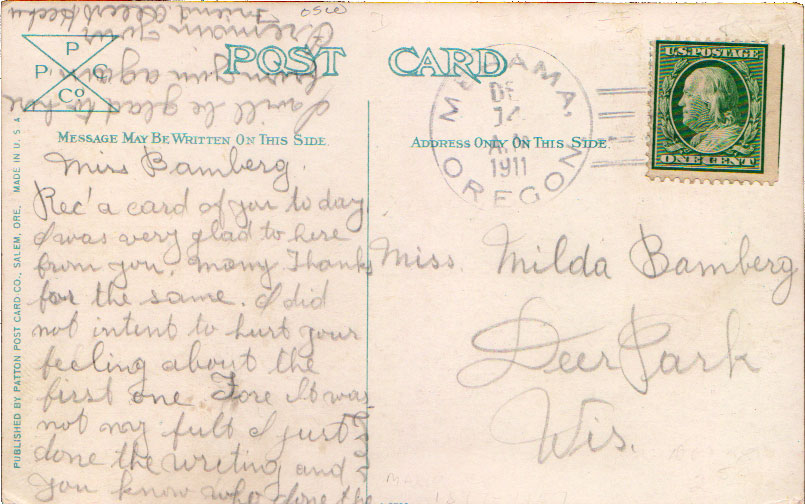 osce
I will be glad to here
from you again
I remain your
Friend
P P C Co
POST CARD
MESSAGE MAY BE WRITTEN ON THIS SIDE.
ADDRESS ONLY ON THIS SIDE.
MEHAMA,
DE
14
A.M.
1911
OREGON
U.S. POSTAGE
ONE CENT
PUBLISHED BY PATTON POST CARD CO., SALEM, ORE. MADE IN U. S. A.
Miss Bamberg.
Rec'a card of you to day
I was very glad to here
from you. Many Thanks
for the same. I did
not intent to hurt your
feeling about the
first one. Fore It was
not my fult I just
done the writing and
you know who done the
Miss. Milda Bamberg
Deer Park
Wis.